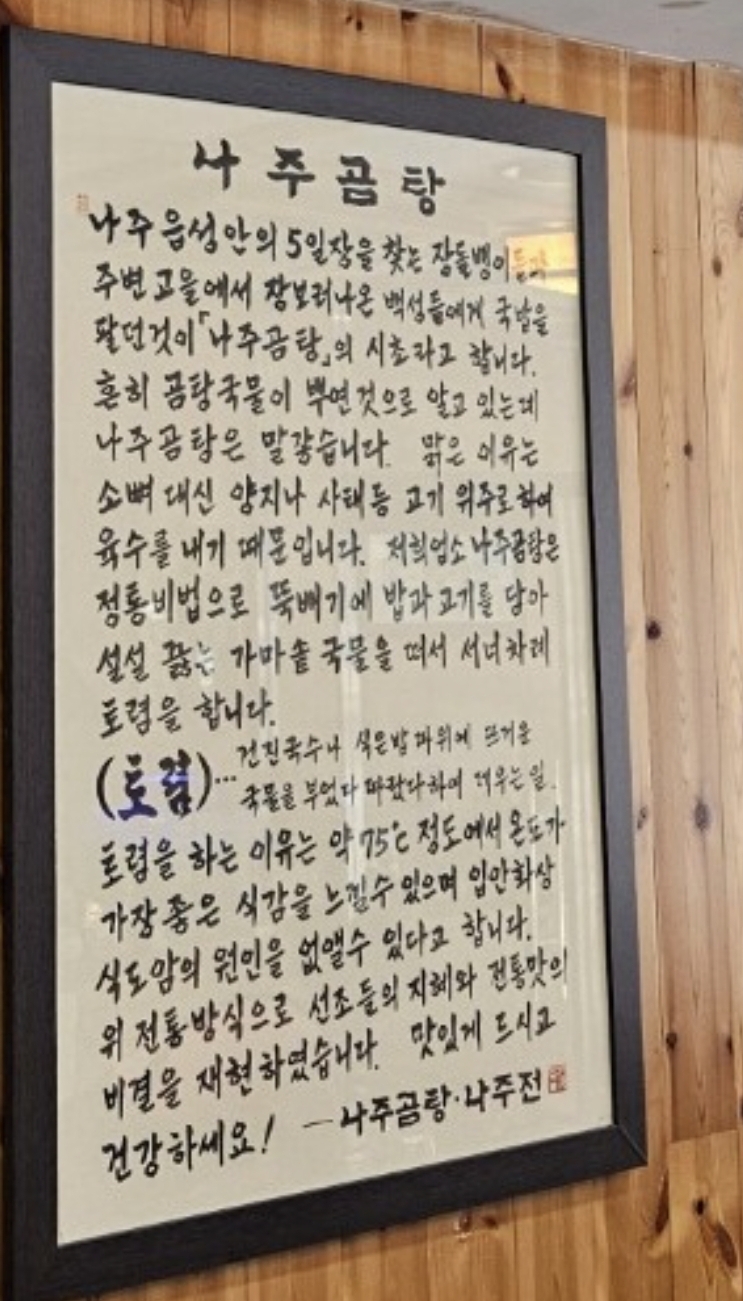 나주곰탕
나주읍성안의 5일장을 찾는 장돌뱅이들과
주변고을에서 장보러나온 백성들에게 국밥을
팔던것이「나주곰탕」의 시초라고 합니다.
흔히 곰탕국물이 뿌연것으로 알고 있는데
나주곰탕은 말갛습니다. 맑은 이유는
소뼈 대신 양지나 사태등 고기 위주로하여
육수를 내기 때문입니다. 저희업소나주곰탕은
정통비법으로 뚝빼기에 밥과고기를 담아
설설 끓는 가마솥 국물을 떠서 서너차례
토렴을 합니다.
(토렴)…건진국수나 식은밥따위에 뜨거운
국물을 부었다 따랐다하여 데우는일.
토렴을 하는 이유는 약 75℃ 정도에서 온도가
가장좋은 식감을 느낄수있으며 입안화상
식도암의 원인을 없앨수 있다고 합니다.
위 전통방식으로 선조들의지혜와 전통맛의
비결을 재현하였습니다. 맛있게 드시고
건강하세요! —나주곰탕·나주전